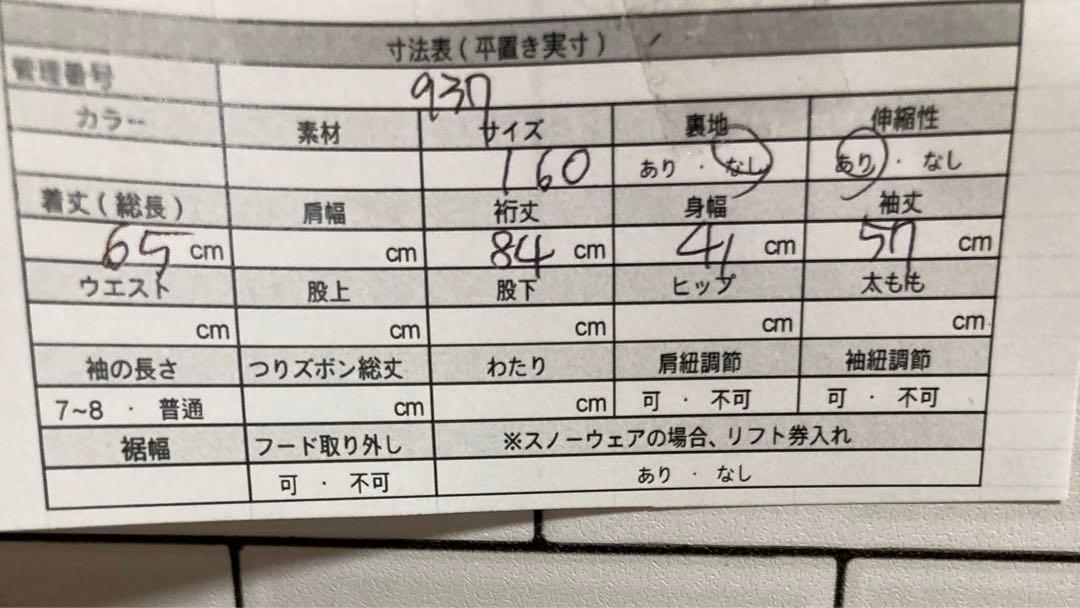 寸法表(平置き実寸)
管理番号 937
カラー 素材 サイズ 裏地 伸縮性
160 あり ・ なし あり ・ なし
着丈(総長) 肩幅 裄丈 身幅 袖丈
65 cm cm 84 cm 41 cm 57 cm
ウエスト 股上 股下 ヒップ 太もも
cm cm cm cm cm
袖の長さ つりズボン総丈 わたり 肩紐調節 袖紐調節
7~8 ・ 普通 cm cm 可 ・ 不可 可 ・ 不可
裾幅 フード取り外し ※スノーウェアの場合、リフト券入れ
可 ・ 不可 あり ・ なし